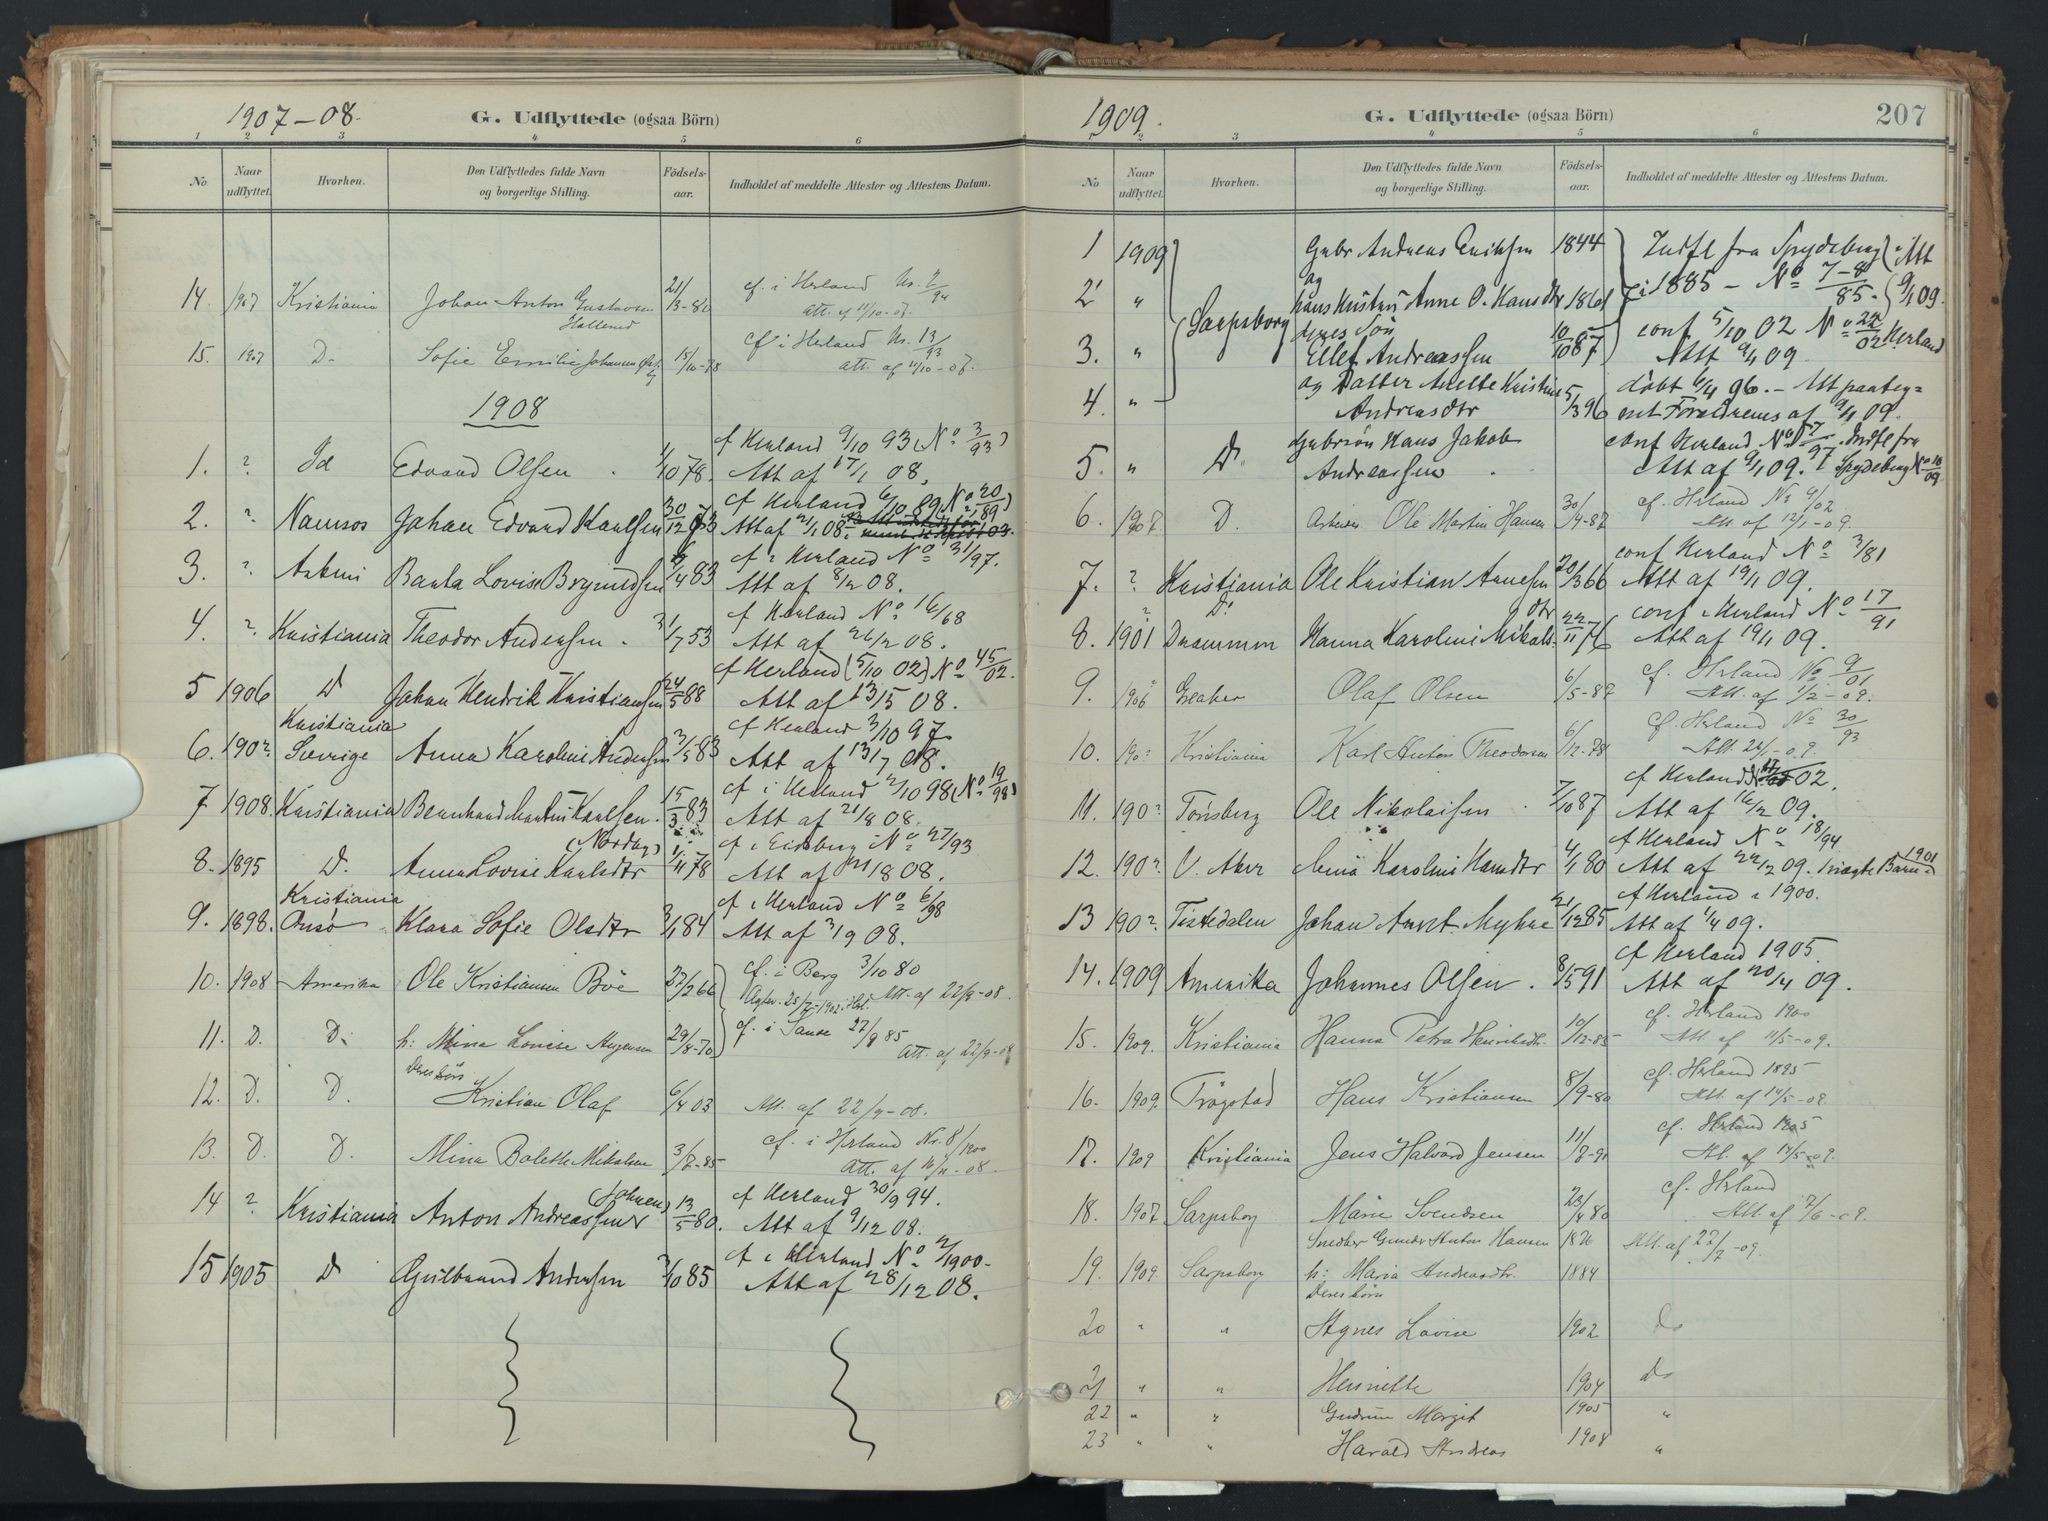 1907-08.
G. Udflyttede (ogsaa Börn)
1 2 3 4 5 6
No
Naar udflyttet.
Hvorhen.
Den Udflyttedes fulde Navn og borgerlige Stilling.
Födsels-aar.
Indholdet af meddelte Attester og Attestens Datum.
14. 1907 Kristiania Johan Anton Gustavsen 21/3-80 cf. i Herland Nr. 7/94
Att. af 11/10-07.
15. 1907 D. Sofie Emilie Johansen 15/10-78 cf i Herland Nr. 13/93
Att. af 11/10-07.
1908
1. ? Id Edvard Olsen 1/10 78. cf Herland 9/10 93 (No 3/93)
Att af 17/1 08.
2. ? Namsos Johan Edvard Karlsen 30/12 73 cf Herland 6/10 89 No 20/89
Att af 21/1 08.
3. ? Askim Berta Lovise Brynildsen 9/4 83 cf i Herland No 31/97.
Att af 8/2 08.
4. ? Kristiania Theodor Andersen 31/7 53 cf Herland No 16/68
Att af 26/2 08.
5 1906 D Johan Hendrik Kristiansen 24/5 88 cf Herland (5/10 02) No 45/02.
Att af 13/5 08.
Kristiania
6. 190? Sverige Anna Karolini Andersen 3/5 83 cf Herland 3/10 97
Att af 13/7 08.
7 1908. Kristiania Bernhard Martin Karlsen 15/3 83 cf i Herland 2/10 98 (No 19/98)
(Nordby) Att af 21/8 08.
8. 1895 D. Anna Lovise Karlsdtr 1/11 78 cf i Eidsberg No 27/93
Att af 21/8 08.
Kristiania
9. 1898. Onsø Klara Sofie Olsdtr 3/1 84 cf i Herland No 6/98
Att af 3/9 08.
10. 1908 Amerika Ole Kristiansen Böe 27/2 66 cf. i Berg 3/10 80
Att. af 22/9-08.
11. D. D. h: Mina Lovise Jörgensen 29/8-70 cf. i
Att. af 22/9-08
Deres börn
12. D. D. Kristian Olaf 6/4 03 Att. af 22/9-08.
13. D. D. Mina Bolette Mikalsen 3/7-85 cf. i Herland Nr. 8/1900
Att. af 16/11-08.
14 ? Kristiania Anton Andreassen (Johnsen) 13/5 80. cf Herland 30/9 94.
Att af 9/12 08.
15 1905 D Gulbrand Andersen 3/10 85 cf i Herland No 2/1900.
Att af 28/12 08.
1909.
G. Udflyttede (ogsaa Börn)
207
1 2 3 4 5 6
No
Naar udflyttet.
Hvorhen.
Den Udflyttedes fulde Navn og borgerlige Stilling.
Födsels-aar.
Indholdet af meddelte Attester og Attestens Datum.
1 1909 Gbr Andreas Eriksen 1844 Indfl fra Spydeberg Att
og
2 " Sarpsborg hans Hustru Anne O. Hansdtr 1861 i 1885 - No 7-8/85. 9/1 09.
deres Søn
3. " Ellef Andreassen 10/10 87 conf 5/10 02 No 22/02 Herland
Att 9/1 09.
og Datter Anette Kristine
4. " Andreasdtr 5/3 96 døbt 6/4 96. - Att paateg-
net Forældrenes af 9/1 09.
5. " D. Gubrsøn Hans Jakob
Andreassen conf Herland No 17/97 Indfl fra
Att af 9/1 09. Spydeberg
6. 1907. D. Arbeider Ole Martin Hansen 30/4-87 cf. Herland No 4/02
Att. af 12/1-09.
7. ? Kristiania Ole Kristian Arnesen 20/3 66 conf Herland No 3/81
Att af 19/1 09.
D.
8. 1901 Drammen Hanna Karolini Nikols dtr 22/11 76 conf i Herland No 17/91
Att af 19/1 09.
9. 1906 Greaker Olaf Olsen 6/5-87 cf. Herland No 9/01
Att. af 1/2-09.
10. 190? Kristiania Karl Anton Theodorsen 6/12-78 cf. Herland No 30/93
Att. 22/1-09.
11. 190? Tönsberg Ole Nikolaisen 7/10 87 cf Herland 02.
Att af 16/2 09.
12. 190? V. Aker Karolini Hansdtr 4/1 80 cf Herland No 18/94
Att af 22/2 09. 1 uægte Barn 1901
13 190? Tistedalen Johan Arnt Myhre 21/12 85 cf Herland i 1900.
Att af 1/4 09.
14. 1909 Amerika Johannes Olsen. 8/5 91 cf Herland 1905.
Att af 20/4 09.
15. 1909. Kristiania Hanna Petra Henriksdtr. 10/12-85 cf. Herland 1900
Att. af 11/5-09.
16. 1909. Trögstad Hans Kristiansen 8/9-80 cf. Herland 1895
Att. af 14/5-09.
17. 1909 Kristiania Jens Halvard Jensen 11/7-91 cf. Herland 1905
Att. af 17/5-09.
18. 1907. Sarpsborg Marie Svendsen 23/4 80 cf. Herland
Att. af 7/6-09.
Snedker Gunder Anton Hansen 1876 Att. af 27/7-09.
19. 1909. Sarpsborg h: Maria Andreasdtr. 1884
Deres börn
20 " " Agnes Lovise 1902 Do
21 " " Henriette 1904 Do
22 " " Gudrun Margit 1905 "
23 " " Harald Andreas 1908 "